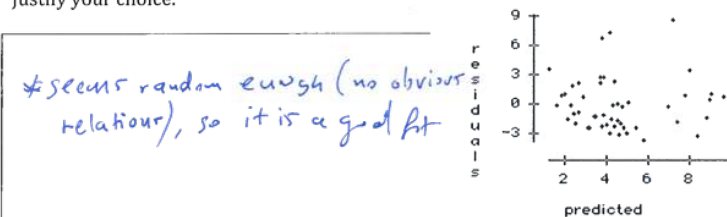 justify your choice.
* seems random enough (no obvious
relations), so it is a good fit
residuals
9
6
3
0
-3
2 4 6 8
predicted